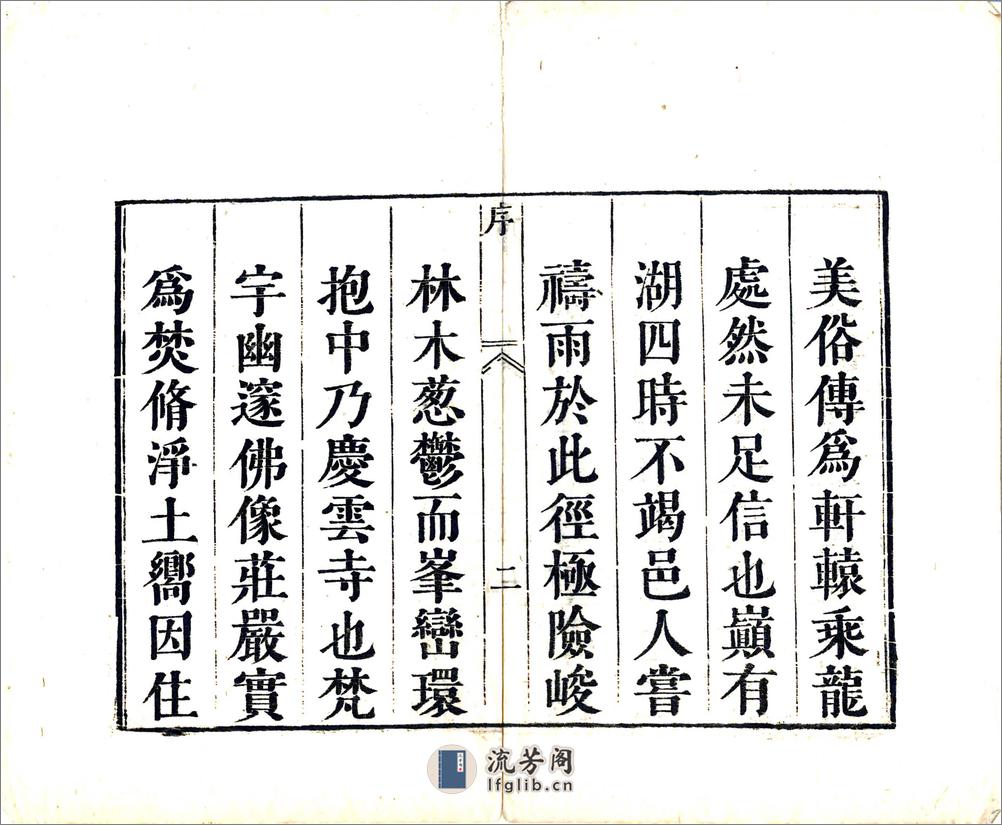 美俗傳爲軒轅乘龍
處然未足信也巔有
湖四時不竭邑人嘗
禱雨於此徑極險峻
序
二
林木葱鬱而峯巒環
抱中乃慶雲寺也梵
宇幽邃佛像莊嚴實
爲焚脩淨土嚮因住
流芳阁
lfglib.cn